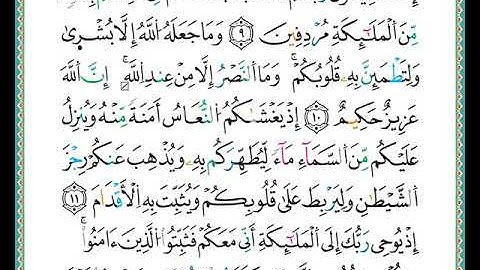 مِّنَ ٱلْمَلَـٰٓئِكَةِ مُرْدِفِينَ ٩ وَمَا جَعَلَهُ ٱللَّهُ إِلَّا بُشْرَىٰ
وَلِتَطْمَئِنَّ بِهِۦ قُلُوبُكُمْ ۚ وَمَا ٱلنَّصْرُ إِلَّا مِنْ عِندِ ٱللَّهِ ۚ إِنَّ ٱللَّهَ
عَزِيزٌ حَكِيمٌ ١٠ إِذْ يُغَشِّيكُمُ ٱلنُّعَاسَ أَمَنَةً مِّنْهُ وَيُنَزِّلُ
عَلَيْكُم مِّنَ ٱلسَّمَآءِ مَآءً لِّيُطَهِّرَكُم بِهِۦ وَيُذْهِبَ عَنكُمْ رِجْزَ
ٱلشَّيْطَـٰنِ وَلِيَرْبِطَ عَلَىٰ قُلُوبِكُمْ وَيُثَبِّتَ بِهِ ٱلْأَقْدَامَ ١١
إِذْ يُوحِى رَبُّكَ إِلَى ٱلْمَلَـٰٓئِكَةِ أَنِّى مَعَكُمْ فَثَبِّتُوا۟ ٱلَّذِينَ ءَامَنُوا۟ ۚ